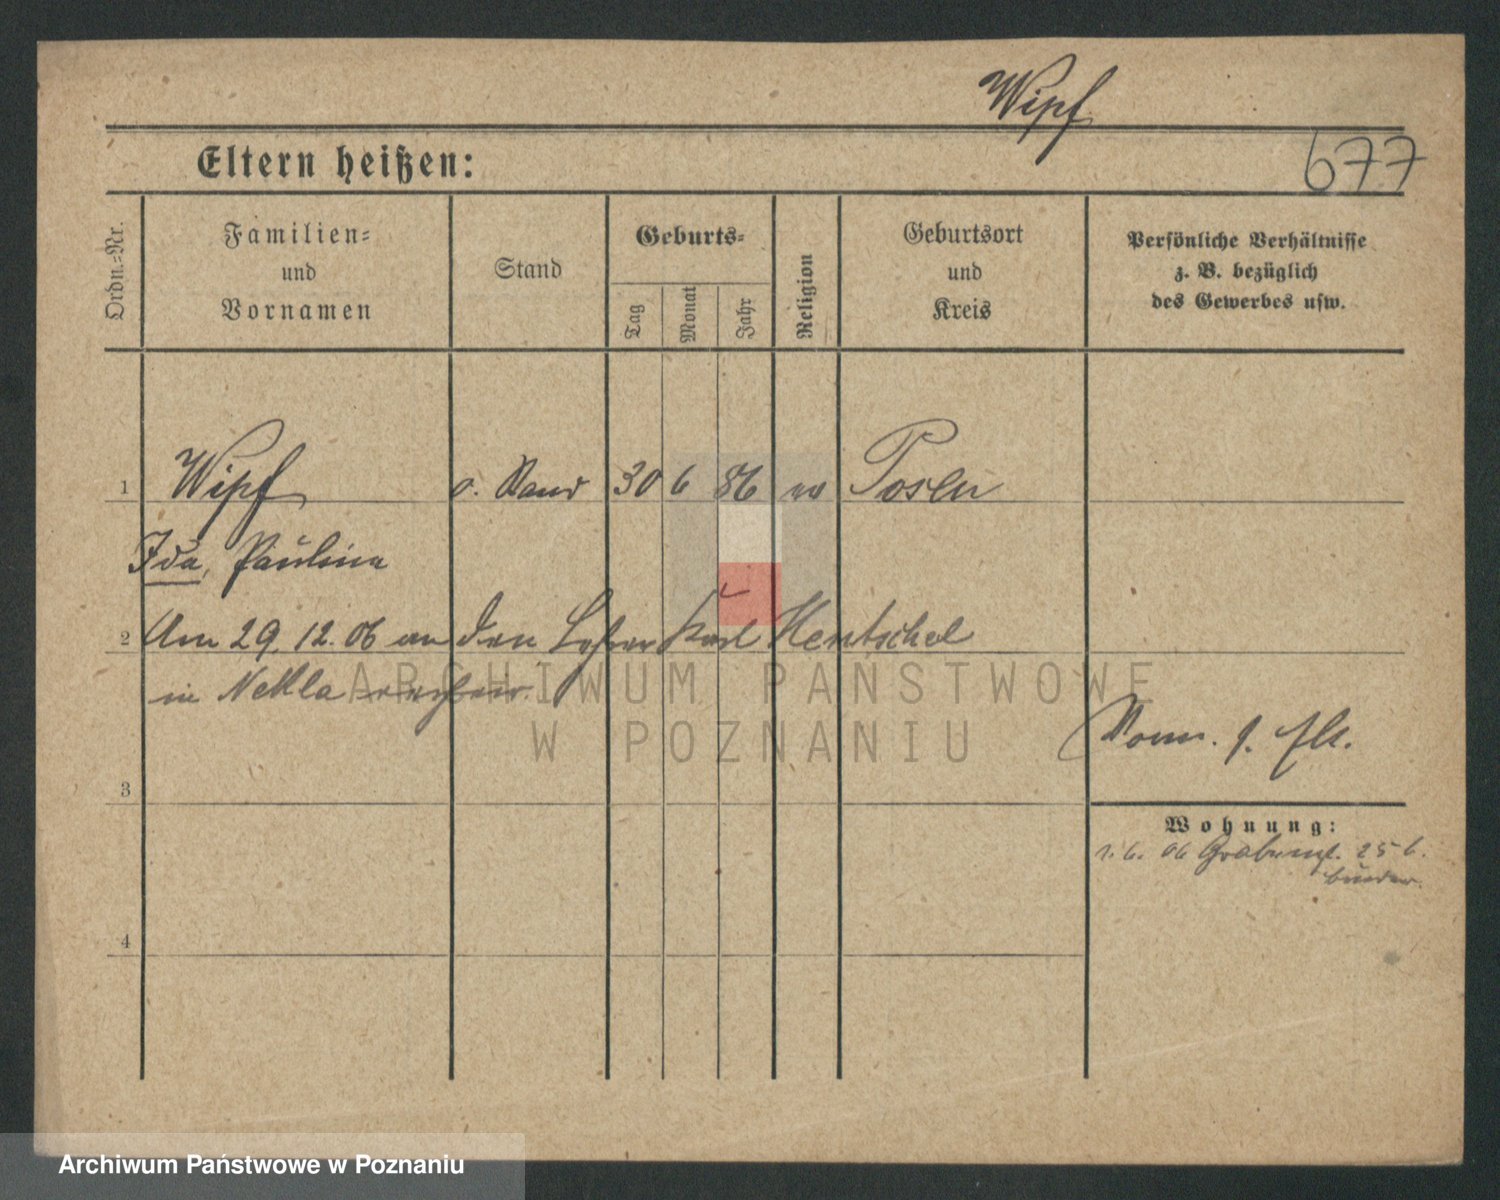 Wipf
677
Eltern heißen:
Ordn.-Nr.
Familien-
und
Vornamen
Stand
Geburts-
Tag
Monat
Jahr
Religion
Geburtsort
und
Kreis
Persönliche Verhältnisse
z. B. bezüglich
des Gewerbes usw.
1 Wipf o. Stand 30 6 86 Posen
Ida, Paulina
2 Am 29. 12. 06 an den Lehrer Karl Hentschel
in Nekla
ARCHIWUM PAŃSTWOWE
W POZNANIU
3
Wohnung:
1. 6. 06 25 b.
4
Archiwum Państwowe w Poznaniu